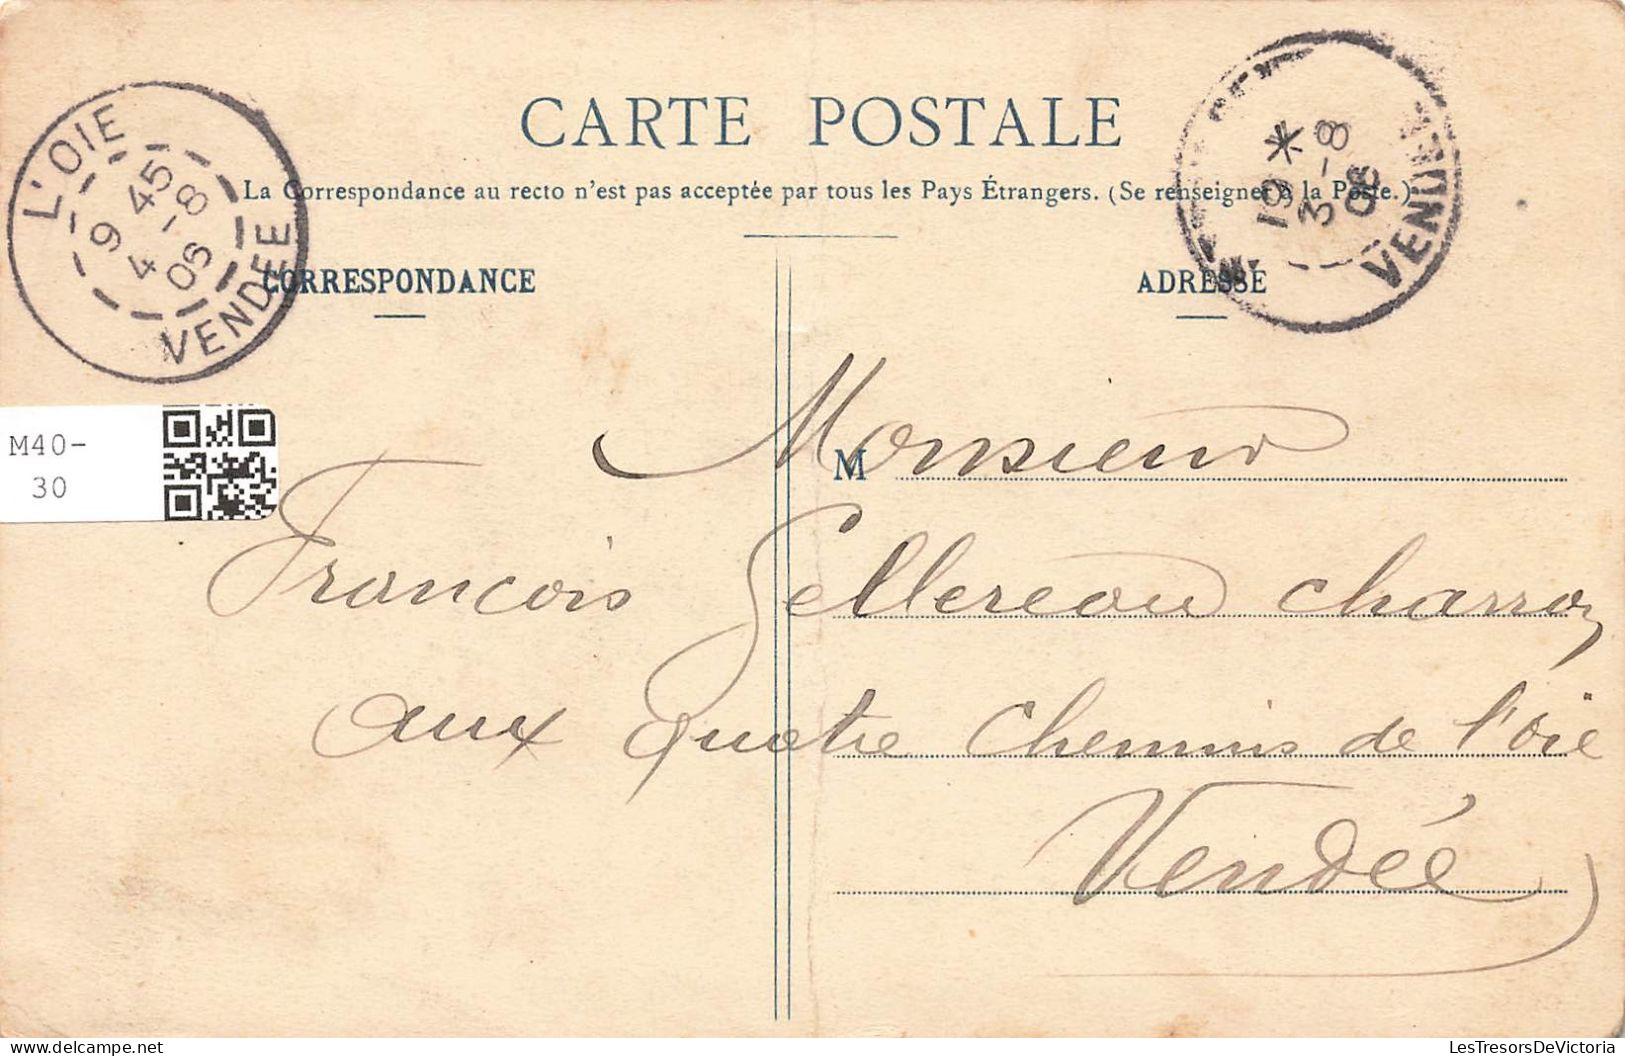 CARTE POSTALE
La Correspondance au recto n'est pas acceptée par tous les Pays Étrangers. (Se renseigner à la Poste.)
L'OIE
9 45
4 - 8
06
VENDÉE
19 *
3 - 8
06
VENDÉE
CORRESPONDANCE
ADRESSE
M40-
30
M
Monsieur
François Gellereau charron
aux quatre chemins de l'oie
Vendée
LesTresorsDeVictoria